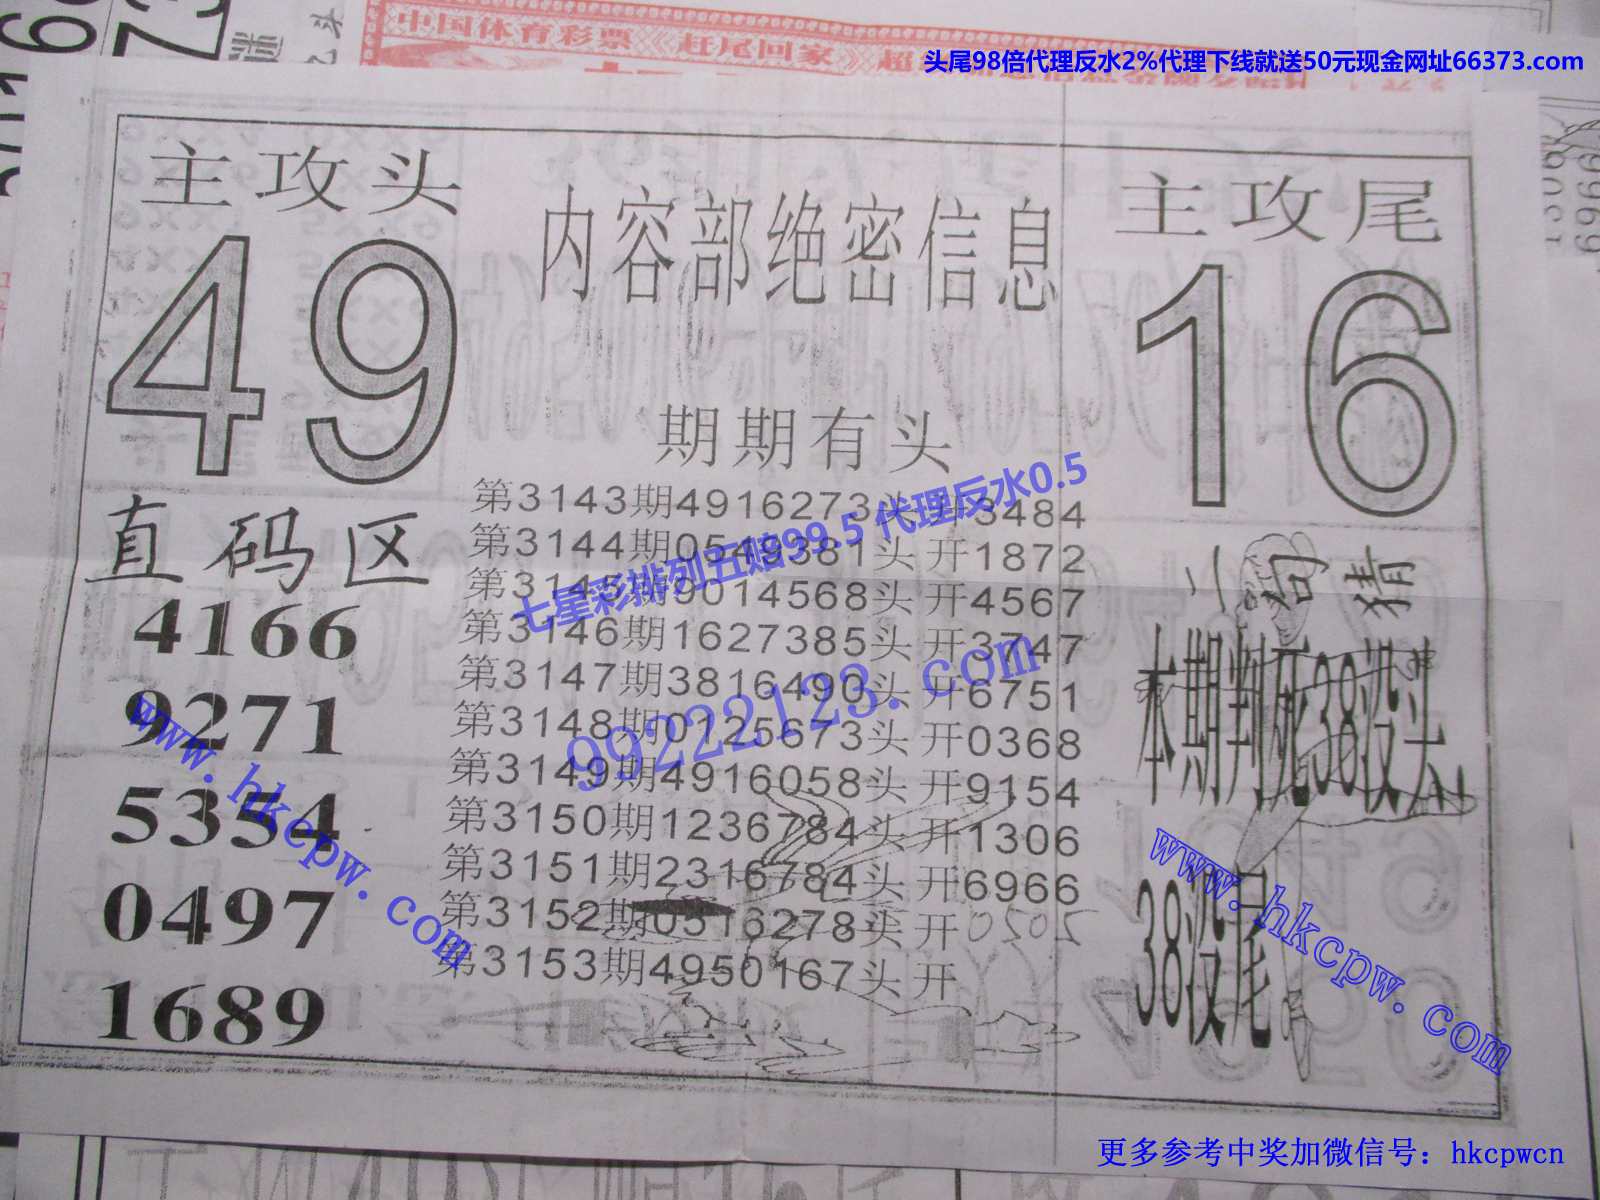 中国体育彩票《赶尾回家》超
头尾98倍代理反水2%代理下线就送50元现金网址66373.com
主攻头
49
内容部绝密信息
主攻尾
16
期期有头
第3143期4916273头 开3484
第3144期0549381头 开1872
第3145期9014568头 开4567
第3146期1627385头 开3747
第3147期3816490头 开6751
第3148期0125673头 开0368
第3149期4916058头 开9154
第3150期1236784头 开1306
第3151期2316784头 开6966
第3152期0516278头 开
第3153期4950167头 开
直码区
4166
9271
5354
0497
1689
一句猜
本期判死38没头
38没尾
七星彩排列五赔99.5 代理反水0.5
99222123.com
www.hkcpw.com
www.hkcpw.com
更多参考中奖加微信号：hkcpwcn